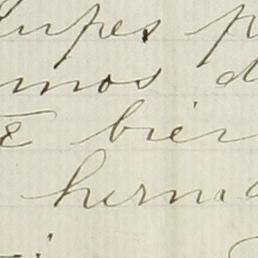 upes p
mos d
E bien
herma